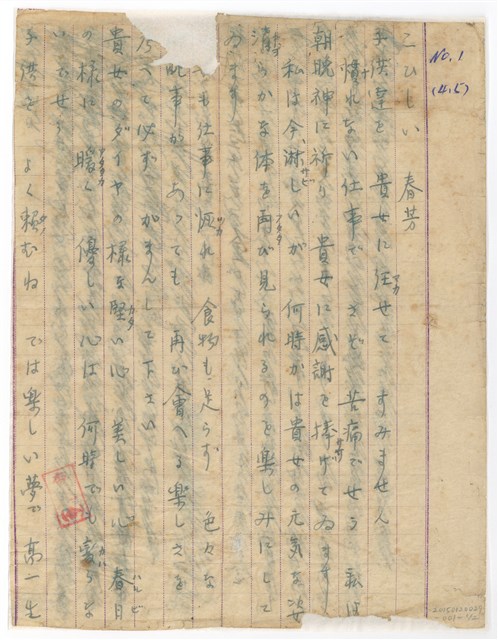 No. 1
(4.5)
こひしい 春芳
子供達を 貴女に任せて すみません
慣れない仕事で さぞ 苦痛でせう 私は
朝晩神に祈り 貴女に感謝を捧げてゐます
私は今淋しいが 何時かは貴女の元気な姿
清らかな体を再び見られるのを楽しみにして
ゐます
も仕事に疲れ 食物も足らず 色々な
事が あっても 再び會へる楽しさを
以て必ず がまんして下さい
貴女のダイヤの様な堅い心 美しい心 春日
の様に 暖く 優しい心は 何時でも変らな
いでせう
子供を よく頼むね では楽しい夢で 高一生